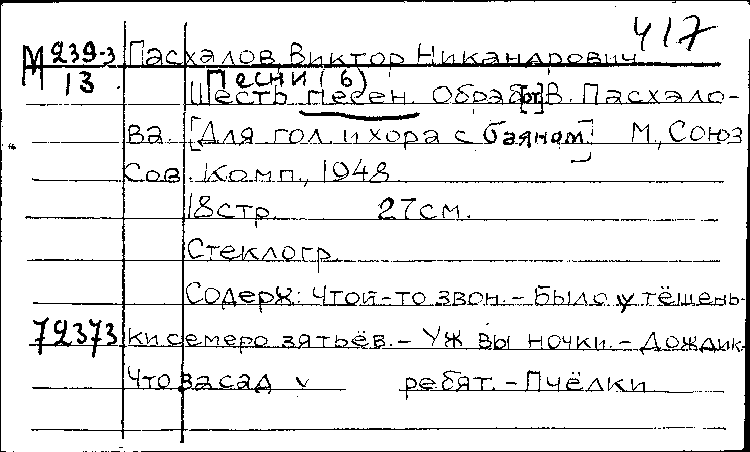 417
М 239-3 Пасхалов, Виктор Никандрович
13 Песни (6)
Шесть песен. Обраб[от] В. Пасхало-
ва. [Для гол. и хора с баяном] М., Союз
Сов. Комп., 1948.
18 стр. 27 см.
Стеклогр.
Содерж: Чтой-то звон. - Было у тёщень-
72373 ки семеро зятьёв. - Уж вы ночки. - Дождик.
Что за сад у ребят. - Пчёлки